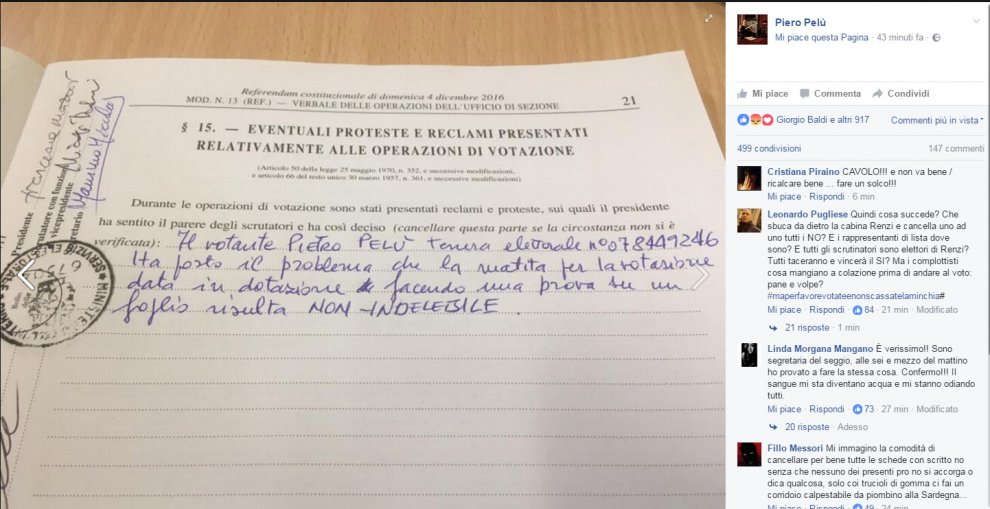 Referendum costituzionale di domenica 4 dicembre 2016
MOD. N. 13 (REF.) — VERBALE DELLE OPERAZIONI DELL'UFFICIO DI SEZIONE
21
§ 15. — EVENTUALI PROTESTE E RECLAMI PRESENTATI
RELATIVAMENTE ALLE OPERAZIONI DI VOTAZIONE
(Articolo 50 della legge 25 maggio 1970, n. 352, e successive modificazioni,
e articolo 66 del testo unico 30 marzo 1957, n. 361, e successive modificazioni)
Durante le operazioni di votazione sono stati presentati reclami e proteste, sui quali il presidente
ha sentito il parere degli scrutatori e ha così deciso (cancellare questa parte se la circostanza non si è
verificata): Il votante PIETRO PELÙ tessera elettorale n° 078449246
Ha posto il problema che la matita per la votazione
data in dotazione facendo una prova su un
foglio risulta NON-INDELEBILE.
Piero Pelù
Mi piace questa Pagina · 43 minuti fa ·
Mi piace Commenta Condividi
Giorgio Baldi e altri 917 Commenti più in vista
499 condivisioni 147 commenti
Cristiana Piraino CAVOLO!!! e non va bene /
ricalcare bene ... fare un solco!!!
Mi piace · Rispondi · 6 min
Leonardo Pugliese Quindi cosa succede? Che
sbuca da dietro la cabina Renzi e cancella uno ad
uno tutti i NO? E i rappresentanti di lista dove
sono? E tutti gli scrutinatori sono elettori di Renzi?
Tutti taceranno e vincerà il SI? Ma i complottisti
cosa mangiano a colazione prima di andare al voto:
pane e volpe?
#maperfavorevoteenonscassatelaminchia#
Mi piace · Rispondi · 84 · 21 min · Modificato
21 risposte · 1 min
Linda Morgana Mangano È verissimo!! Sono
segretaria del seggio, alle sei e mezzo del mattino
ho provato a fare la stessa cosa. Confermo!!! Il
sangue mi sta diventano acqua e mi stanno odiando
tutti.
Mi piace · Rispondi · 73 · 27 min · Modificato
20 risposte · Adesso
Fillo Messori Mi immagino la comodità di
cancellare per bene tutte le schede con scritto no
senza che nessuno dei presenti pro no si accorga o
dica qualcosa, solo coi trucioli di gomma ci fai un
corridoio calpestabile da piombino alla Sardegna...
Mi piace · Rispondi · 49 · 24 min